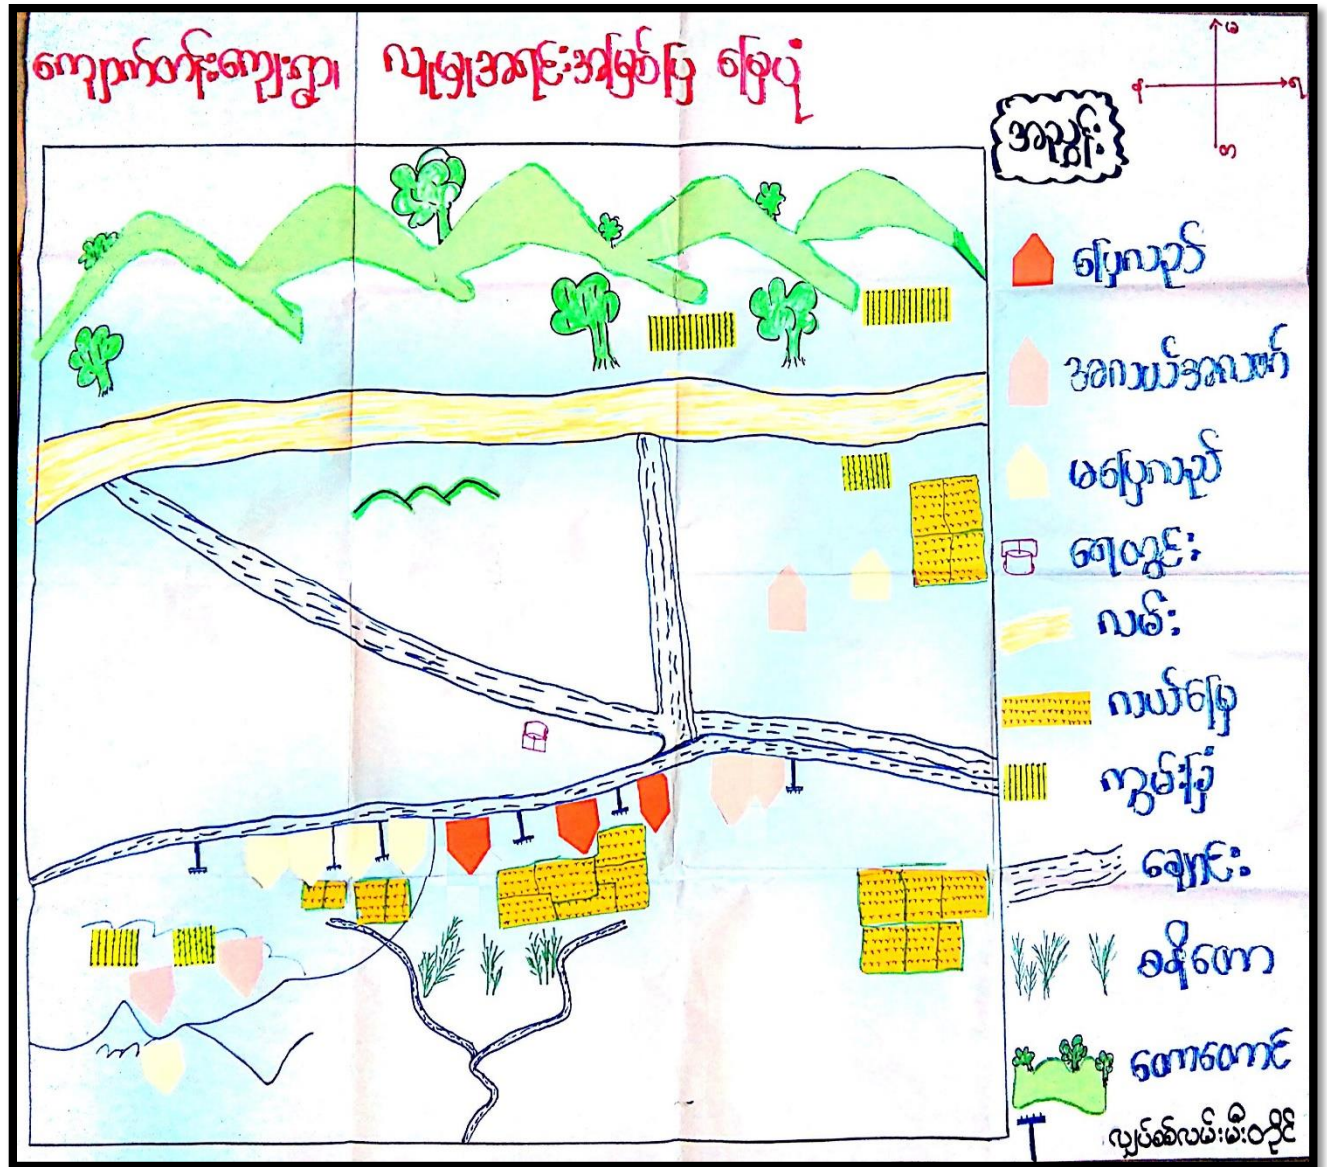 ကျောက်တန်းကျေးရွာ လူမှုအရင်းအမြစ်ပြ မြေပုံ
မ
န ရ
တ
အညွှန်း
ပြေလည်
အလယ်အလတ်
မပြေလည်
ရေတွင်း
လမ်း
လယ်မြေ
ကွမ်းခြံ
ချောင်း
ဓနိတော
တောတောင်
လျှပ်စစ်လမ်းမီးတိုင်